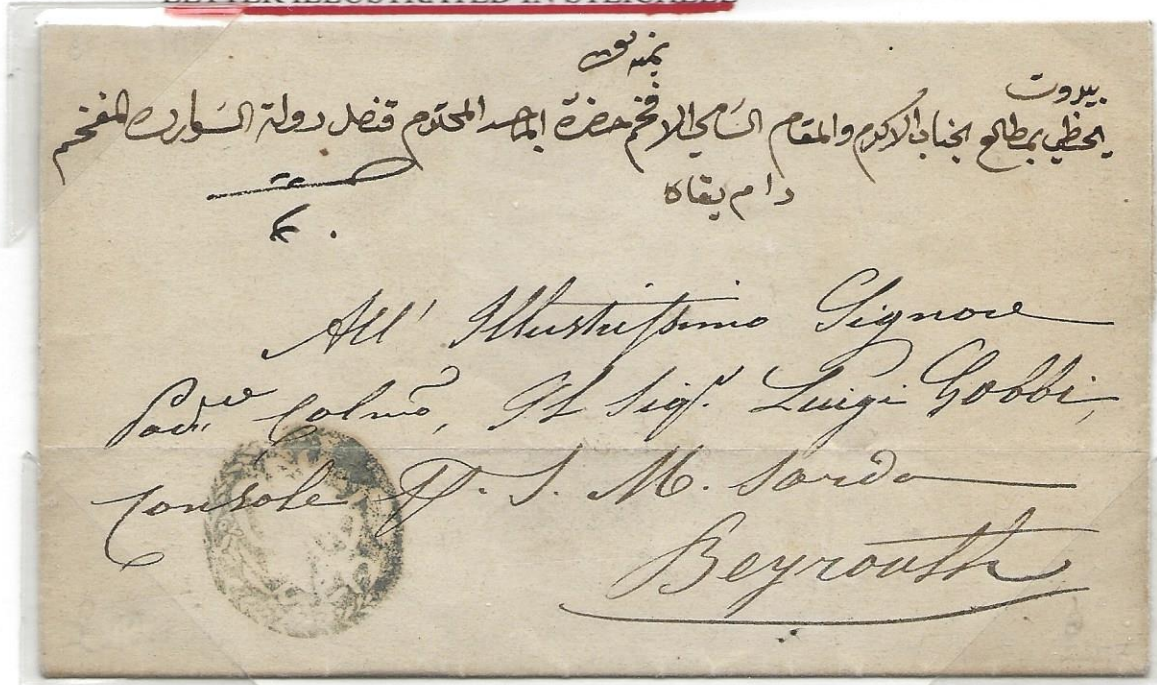 LETTER ILLUSTRATED IN STEICHELE
بمنه تع
بيروت
يحظى بمطالع الجناب الاكرم والمقام السامي الافخم حضرة الماجد المحترم قنصل دولة الساردو المفخم
دام بقاه
All' Illustrissimo Signore
Pad.ne Colmo, Il Sigr. Luigi Gobbi,
Console Pr. S. M. Sarda
Beyrouth